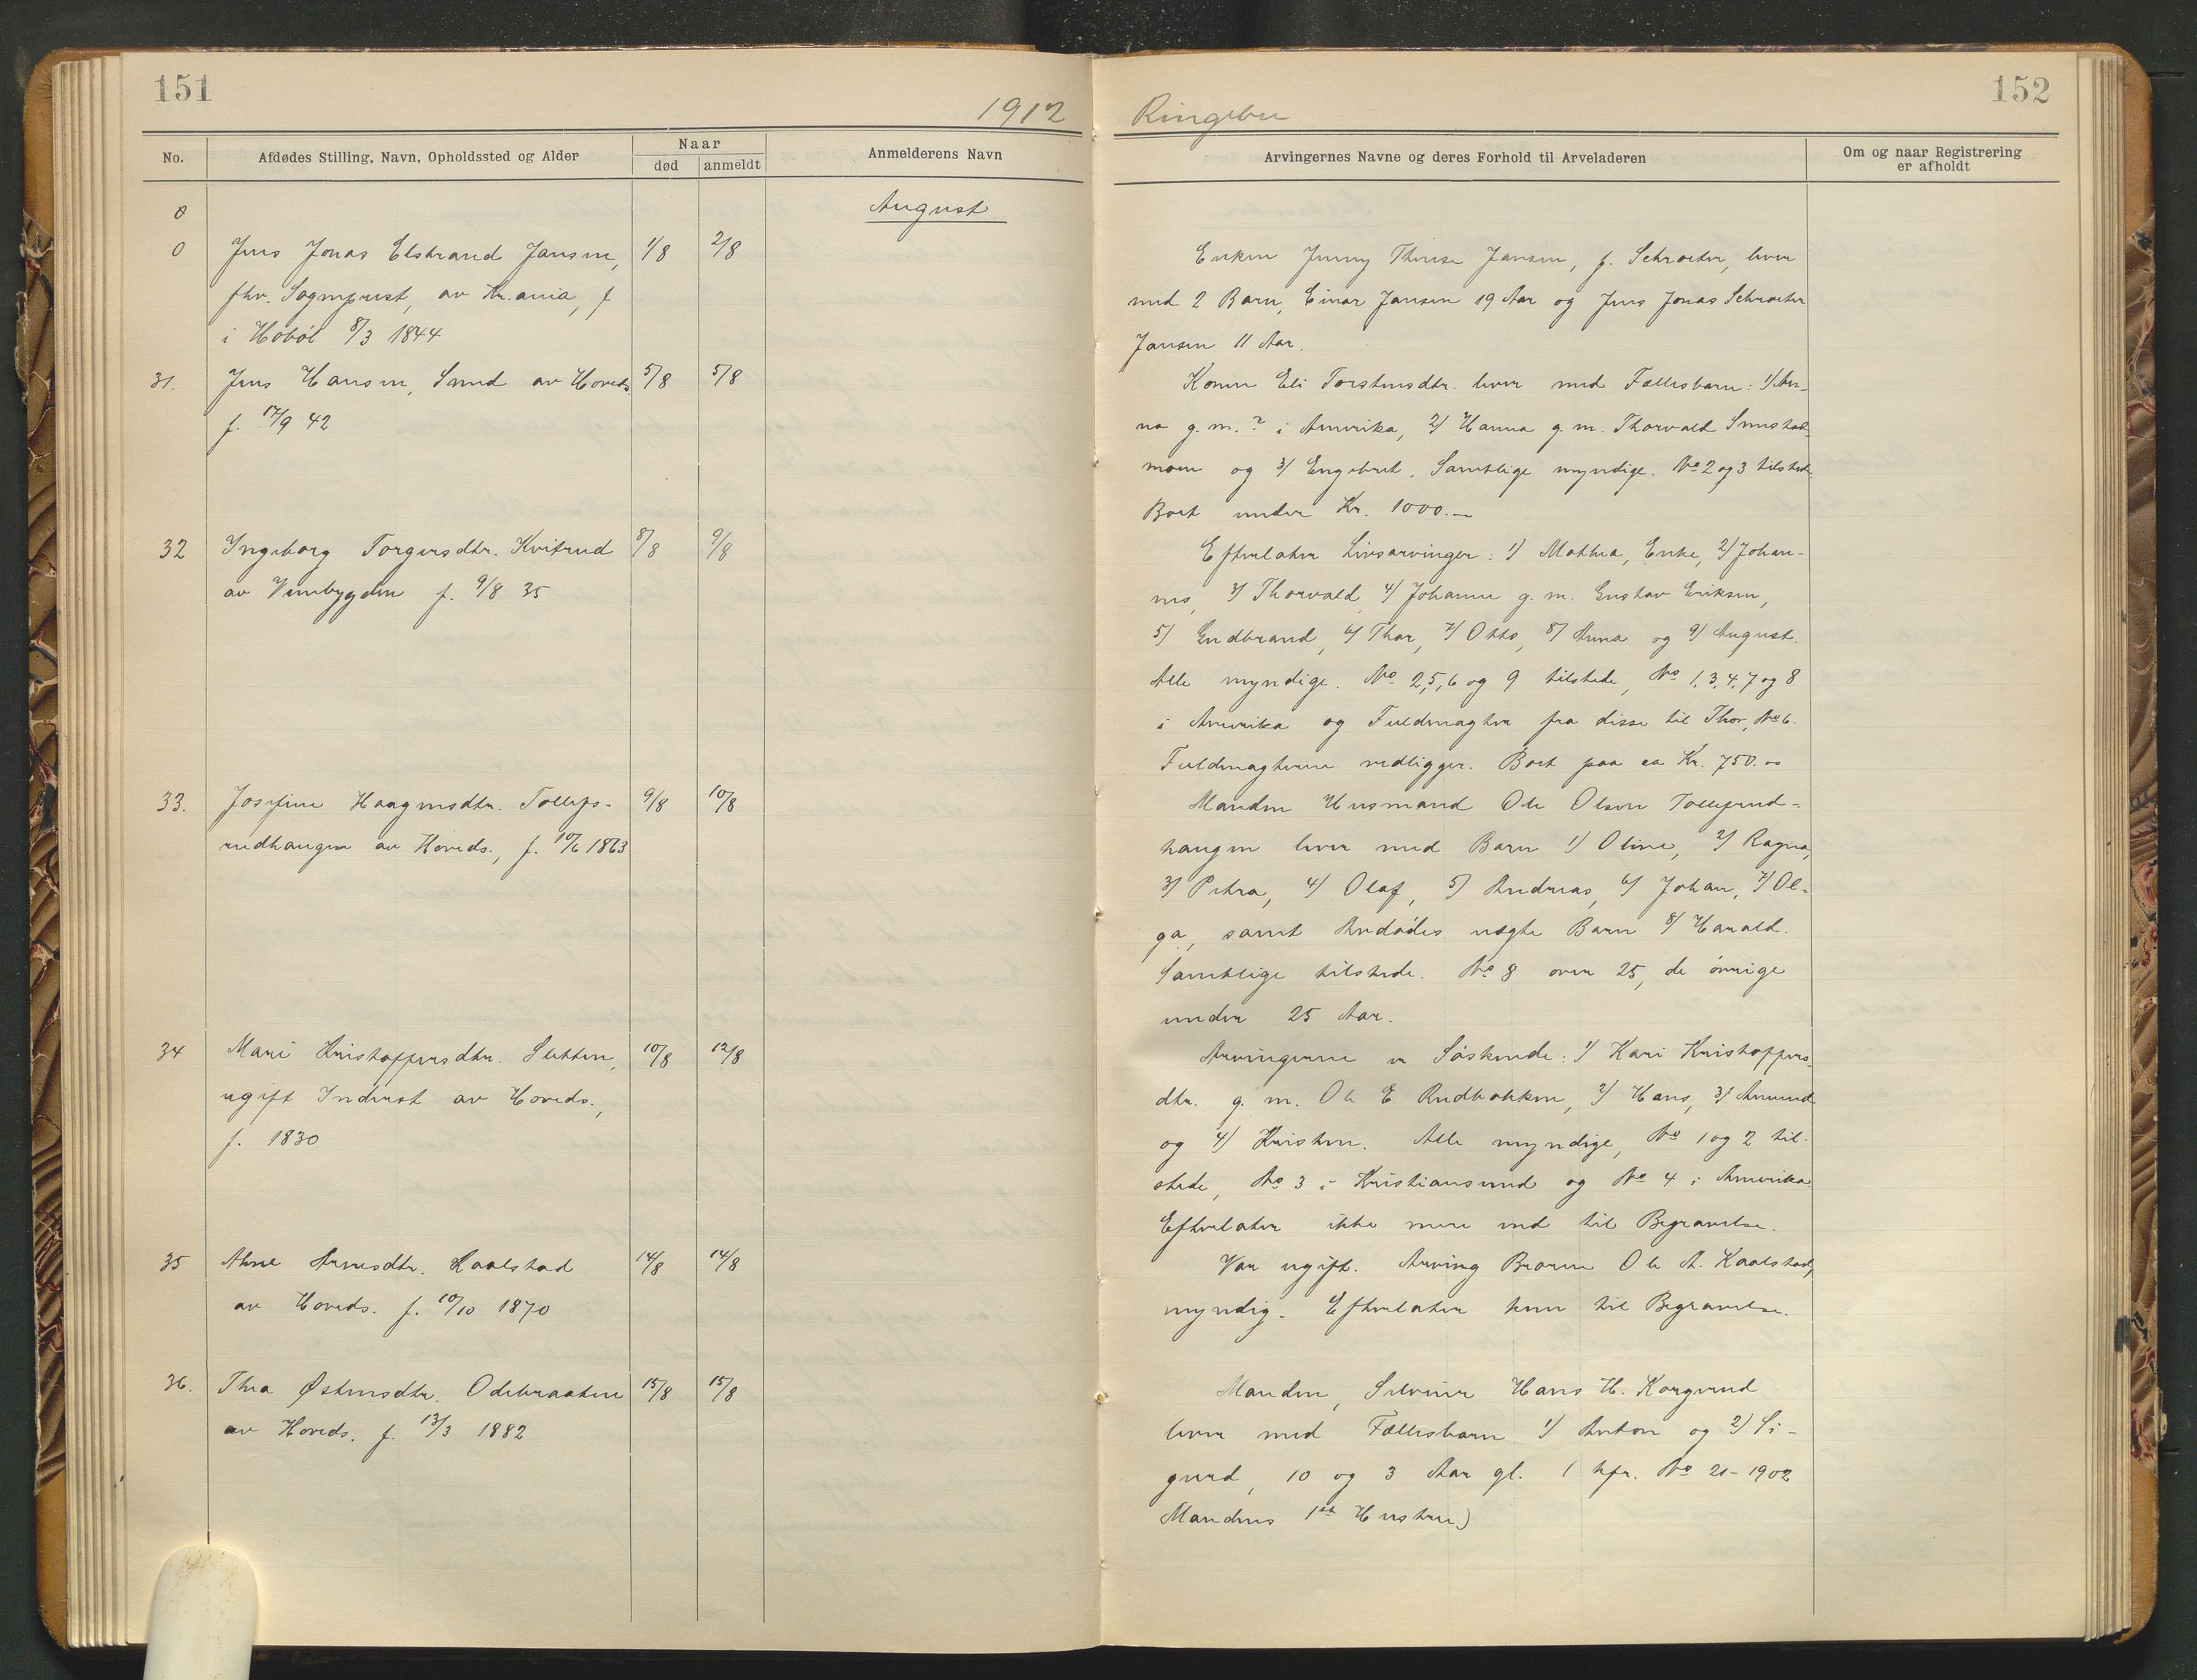 151
1912
No.
Afdødes Stilling, Navn, Opholdssted og Alder
Naar
død
anmeldt
Anmelderens Navn
August
0
0 Jens Jonas Elstrand Jansen, 1/8 2/8
fhv. Sogneprest, av Kr.ania, f
i Høbøl 8/3 1844
31. Jens Hansen, Smed av Hoveds. 5/8 5/8
f. 17/9 42
32 Ingeborg Torgersdtr. Kvitrud 8/8 9/8
av Venebygden f. 9/8 35
33. Josefine Haagensdtr. Tollefs- 9/8 10/8
rudhaugen av Hoveds., f. 10/6 1863
34 Mari Kristoffersdtr. Sletten, 10/8 12/8
ugift Inderst av Hoveds.,
f. 1830
35 Anne Arnesdtr. Kaalstad 14/8 14/8
av Hoveds. f. 10/10 1870
36. Thea Østensdtr. Odebraaten 15/8 15/8
av Hoveds. f. 13/3 1882
152
Ringebu
Arvingernes Navne og deres Forhold til Arveladeren
Om og naar Registrering
er afholdt
Enken Jenny Therese Jansen, f. Schroeter, lever
med 2 Barn, Einar Jansen 19 Aar og Jens Jonas Schroeter
Jansen 11 Aar.
Konen Eli Torstensdtr. lever med Fællesbarn: 1/ An-
na g. m. ? i Amerika, 2/ Hanna g. m. Thorvald
moen og 3/ Engebret. Samtlige myndige. No 2 og 3 tilstede.
Boet under Kr. 1000.-
Efterlater Livsarvinger: 1) Mathea, Enke, 2/ Johan-
nes, 3/ Thorvald, 4/ Johanne g. m. Gustav Eriksen,
5) Gudbrand, 6/ Thor, 7/ Otto, 8/ Anna og 9/ August.
Alle myndige. No 2, 5, 6 og 9 tilstede, No 1, 3, 4, 7 og 8
i Amerika og Fuldmagter fra disse til Thor, No 6.
Fuldmagterne vedligger. Boet paa ca Kr. 750.00
Manden Husmand Ole Olsen Tollefrud-
haugen lever med Barn 1) Oline, 2/ Ragna,
3/ Petra, 4/ Olaf, 5) Andreas, 6/ Johan, 7/ Ol-
ga, samt Avdødes uægte Barn 8/ Harald.
Samtlige tilstede. No 8 over 25, de øvrige
under 25 Aar.
Arvingerne er Søskende: 1/ Kari Kristoffers-
dtr. g. m. Ole E. Rudbakken, 2/ Hans, 3/ Amund
og 4/ Kristen. Alle myndige, No 1 og 2 til-
stede, No 3 i Kristiansund og No 4 i Amerika.
Efterlater ikke mere end til Begravelse.
Var ugift. Arving Broren Ole A. Kaalstad,
myndig. Efterlater kun til Begravelse.
Manden, Selveier Hans H. Korgerud
lever med Fællesbarn 1/ Anton og 2) Si-
gurd, 10 og 3 Aar gl. ( kfr. No 21-1902
Mandens 1ste Hustru)